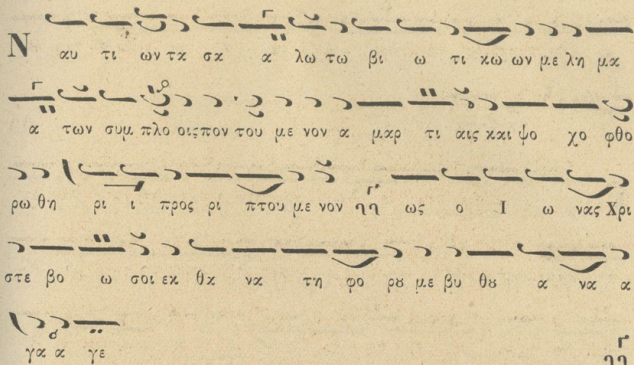 Ν αυ τι ων τα σα α λω τω βι ω τι κω ων με λη μα
α των συμ πλο οις πον του με νον α μαρ τι αις και ψο χο φθο
ρω θη ρι ι προς ρι πτου με νον ως ο Ι ω νας Χρι
στε βο ω σοι εκ θα να τη φο ρȣ με βυ θȣ α να α
γα α γε